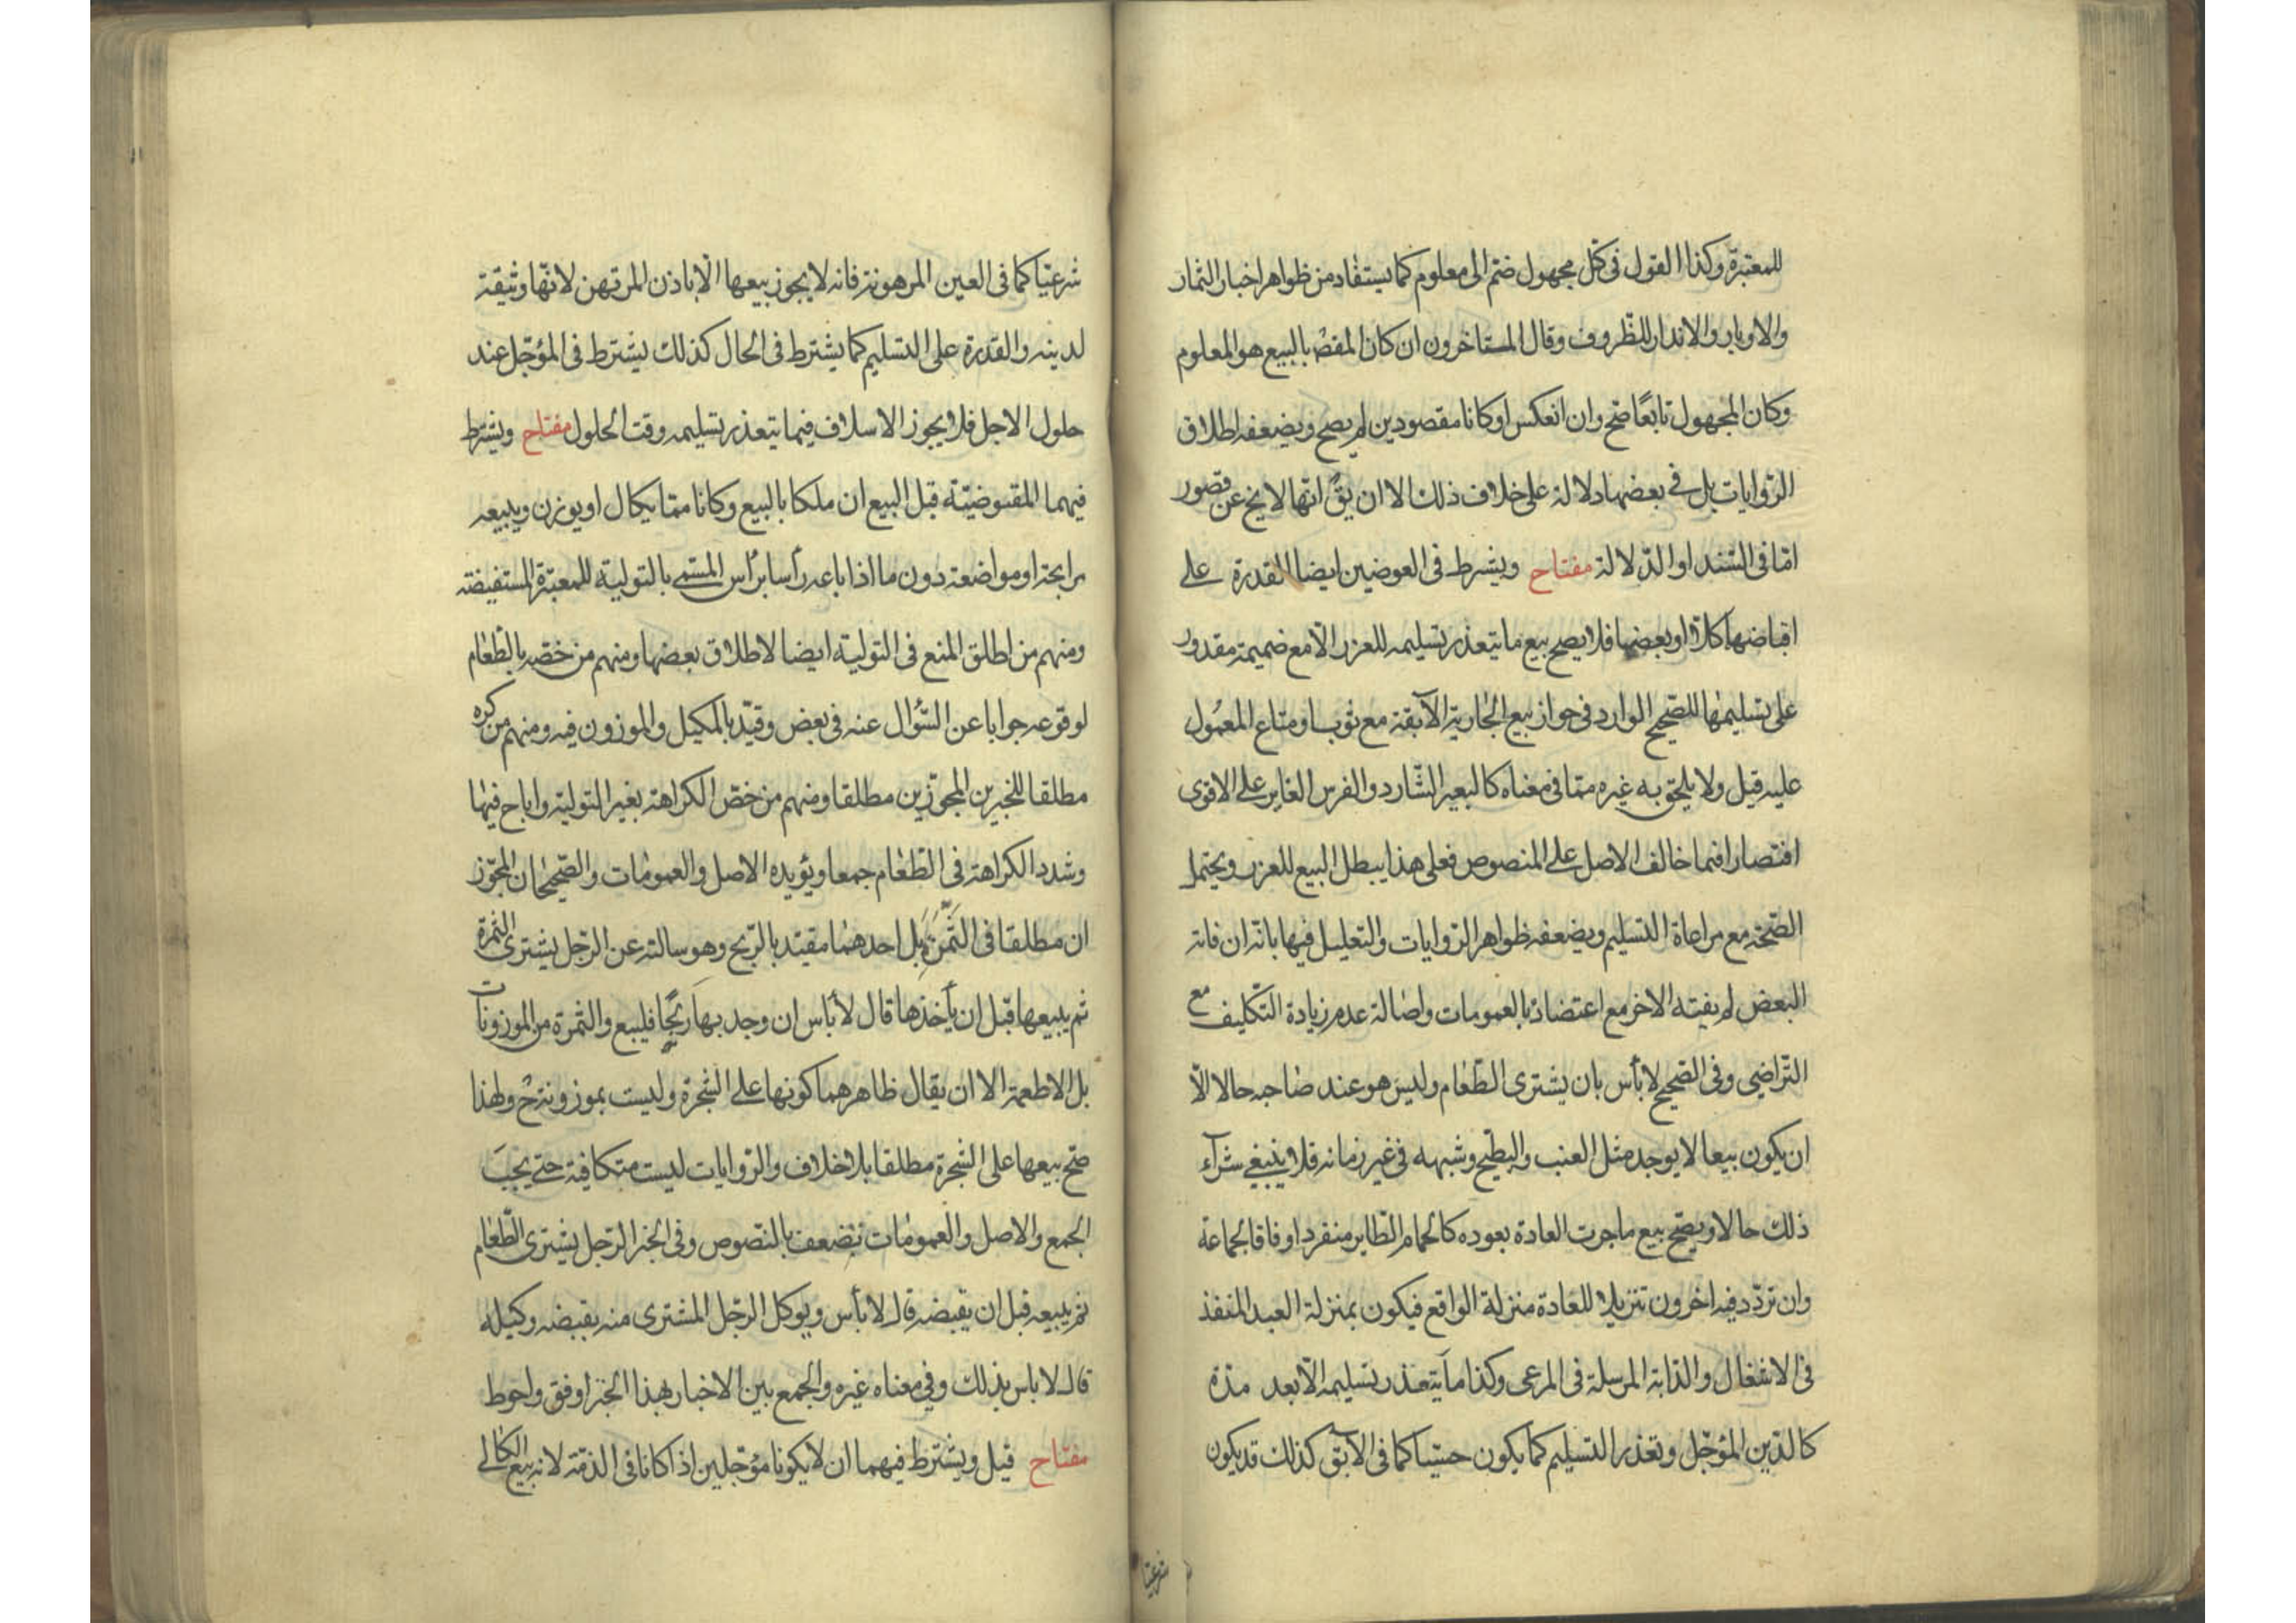 للمعتبرة وكذا القول فى كل مجهول ضم الى معلوم كما يستفاد من ظواهر اخبار الثمار
والاوبار والاندار للظروف وقال المستاخرون ان كان المقصْ بالبيع هو المعلوم
وكان المجهول تابعًا صح وان انعكس او كانا مقصودين لم يصح ويضعفه اطلاق
الروايات بل فى بعضها دلالة على خلاف ذلك الا ان يقَ انها لا يخ عن قصور
امّا فى السّند او الدّلالة مفتاح ويشرط فى العوضين ايضا القدرة على
اقباضها كلّا او بعضها فلا يصح بيع ما يتعذر تسليمه للغرر الّا مع ضميمة مقدور
على تسليمها للصّحيح الوارد فى جواز بيع الجارية الآبقة مع ثوب او متاع المعمول
عليه قيل ولا يلحق به غيره ممّا فى معناه كالبعير الشّارد والفرس الغاير على الاقوى
اقتصارا فيما خالف الاصل على المنصوص فعلى هذا يبطل البيع للغرر ويحتمل
الصّحة مع مراعاة التسليم ويضعفه ظواهر الروايات والتعليل فيها بانّه ان فاته
البعض لم يفته الاخر مع اعتضاد بالعمومات واصالة عدم زيادة التّكليف مع
التّراضى وفى الصّحيح لا بأس بان يشترى الطّعام وليس هو عند صاحبه حالا الّا
ان يكون بيعا لا يوجد مثل العنب والبطّيخ وشبهه فى غير زمانه فلا ينبغى شرآء
ذلك حالا ويصّح بيع ماجرت العادة بعوده كالحمام الطّاير منفردا وفاقا لجماعة
وان تردّد فيه اخرون تنزيلا للعادة منزلة الواقع فيكون بمنزلة العبد المنفذ
فى الاشغال والدّابة المرسلة فى المرعى وكذا ما يتعذر تسليمه الّا بعد مدّة
كالدّين المؤجّل وتعذر التسليم كما يكون حسّيا كما فى الآبق كذلك قد يكون
شرعيّا
شرعيّا كما فى العين المرهونة فانه لا يجوز بيعها الّا باذن المرتهن لانّها وثيقة
لدينه والقدرة على التسليم كما يشترط فى الحال كذلك يشترط فى المؤجّل عند
حلول الاجل فلا يجوز الاسلاف فيما يتعذر تسليمه وقت الحلول مفتاح ويشترط
فيهما المقبوضيّة قبل البيع ان ملكا بالبيع وكانا ممّا يكال او يوزن ويبيعه
مرابحة او مواضعة دون ما اذا باعه رأسا برأس المسمّى بالتولية للمعتبرة المستفيضة
ومنهم من اطلق المنع فى التولية ايضا لاطلاق بعضها ومنهم من خصّه بالطّعام
لوقوعه جوابا عن السّؤال عنه فى بعض وقيّد بالمكيل والموزون فيه ومنهم من كره
مطلقا للخبرين المجوّزين مطلقا ومنهم من خصّ الكراهة بغير التولية واباح فيها
وشدد الكراهة فى الطّعام جمعا ويؤيده الاصل والعمومات والصّحيحان المجوّز
ان مطلقا فى الثّمرة بل احدهما مقيّد بالرّبح وهو سالته عن الرّجل يشترى الثمرة
ثم يبيعها قبل ان يأخذها قال لا بأس ان وجد بها ربحًا فليبع والثمرة من الموزونات
بل الاطعمة الا ان يقال ظاهرهما كونها على الشّجرة وليست بموزونة حْ ولهذا
صّح بيعها على الشجرة مطلقا بلا خلاف والرّوايات ليست متكافية حتى يجبَ
الجمع والاصل والعمومات تضعف بالنّصوص وفى الخبر الرّجل يشترى الطّعام
ثم يبيعه قبل ان يقبضه قال لا بأس ويوكل الرّجل المشترى منه بقبضه وكيله
قال لا باس بذلك وفى معناه غيره والجمع بين الاخبار بهذا الخبر اوفق واحوط
مفتاح قيل ويشترط فيهما ان لا يكونا مؤجلين اذا كانا فى الذمّة لانه بيع الكالى